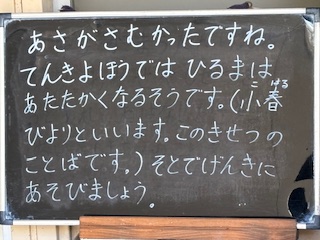 あさがさむかったですね。
てんきよほうでは ひるまは
あたたかくなるそうです。(小春
こ はる
びよりといいます。このきせつの
ことばです。)そとでげんきに
あそびましょう。